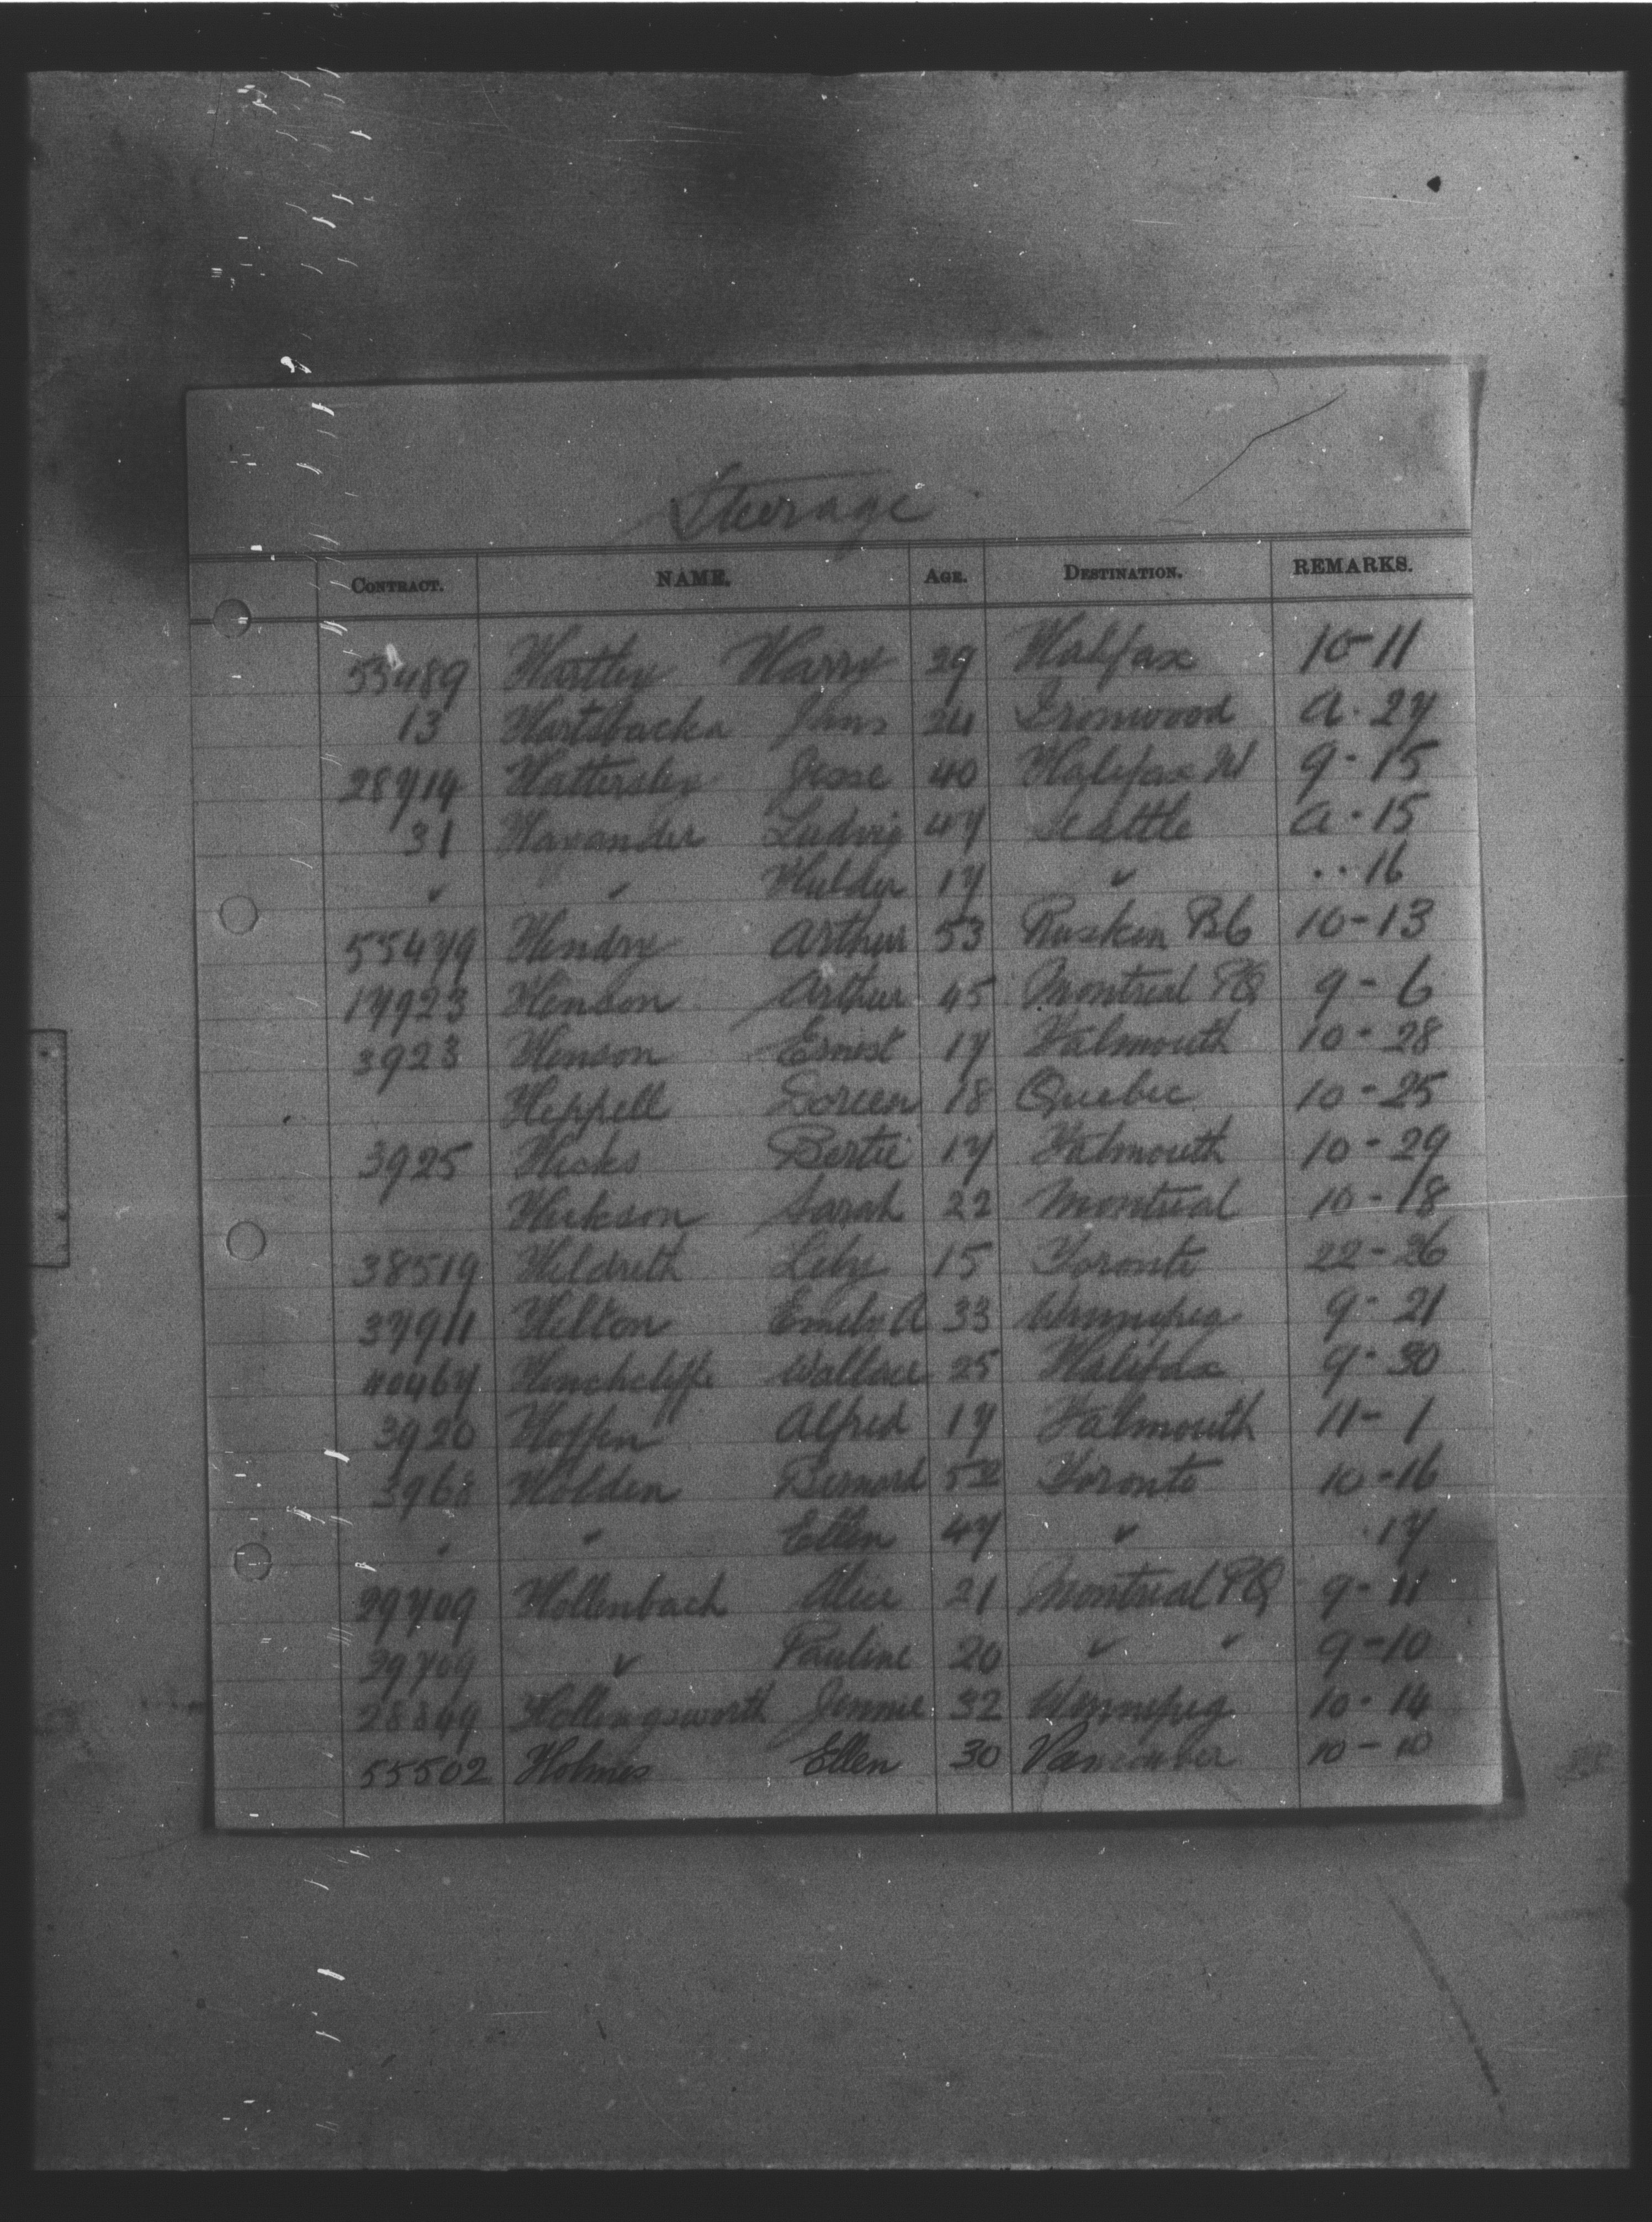 Steerage
CONTRACT. NAME. AGE. DESTINATION. REMARKS.
55489 Hartley Harry 29 Halifax 10-11
13 Hartsbacka Jans 24 Ironwood A-27
28714 Hattersley Jesse 40 Halifax 9-15
31 Havander Ludvig 47 Seattle A-15
" " Hulder 17 " " 16
55479 Hendry Arthur 53 Ruskin BC 10-13
17923 Henson Arthur 45 Montreal PQ 9-6
3923 Henson Ernest 17 Falmouth 10-28
Heppell Doreen 18 Quebec 10-25
3925 Hicks Bertie 17 Falmouth 10-29
Hickson Sarah 22 Montreal 10-18
38519 Hildreth Lily 15 Toronto 22-26
37911 Hilton Emily A 33 Winnipeg 9-21
40467 Hinchcliffe Wallace 25 Halifax 9-30
3920 Hoffen Alfred 17 Falmouth 11-1
Holden Bernard Toronto 10-16
" " Ellen 47 " 17
29709 Hollenbach Alice 21 Montreal PQ 9-11
29709 " Pauline 20 " " 9-10
28849 Hollingsworth Jennie 32 Winnipeg 10-14
55502 Holmes Ellen 30 Vancouver 10-10